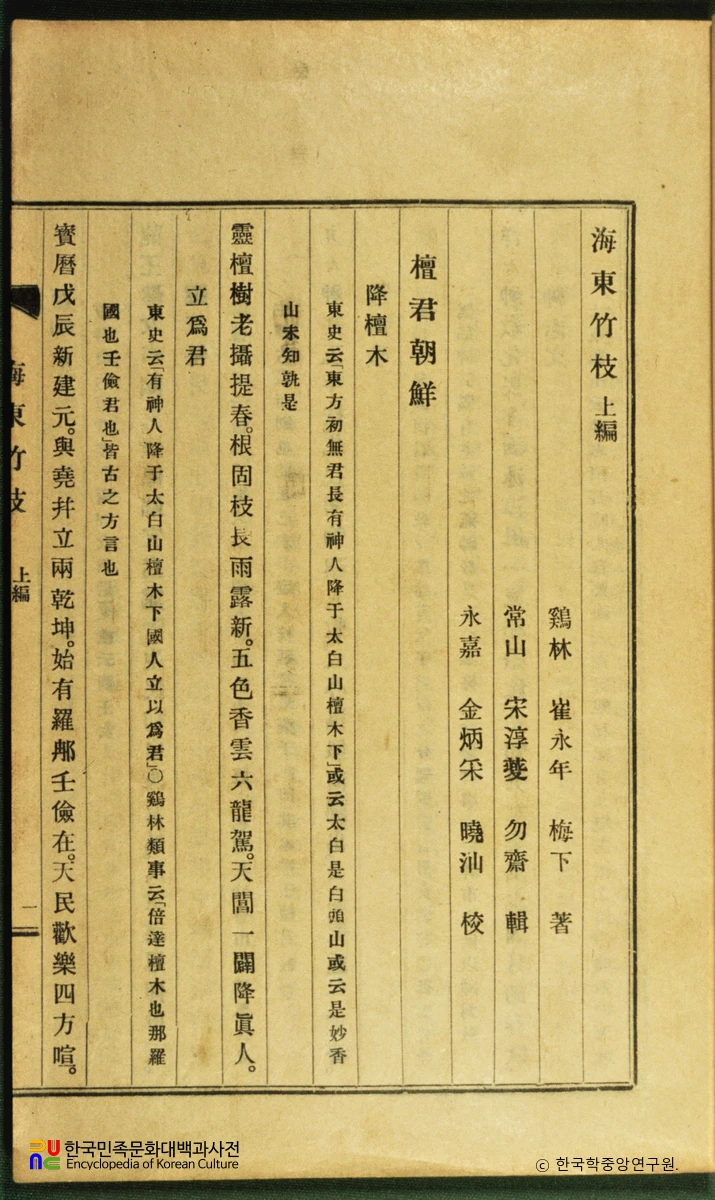 海東竹枝 上編
鷄林 崔永年 梅下 著
常山 宋淳夔 勿齋 輯
永嘉 金炳采 曉汕 校
檀君朝鮮
降檀木
東史云「東方初無君長有神人降于太白山檀木下」或云太白是白頭山或云是妙香
山未知孰是
靈檀樹老攝提春。根固枝長雨露新。五色香雲六龍駕。天閶一闢降眞人。
立爲君
東史云「有神人降于太白山檀木下國人立以爲君」○鷄林類事云「倍達檀木也那羅
國也壬儉君也」皆古之方言也
寶曆戊辰新建元。與堯幷立兩乾坤。始有羅邦壬儉在。天民歡樂四方喧。
海東竹枝 上編 一
한국민족문화대백과사전
Encyclopedia of Korean Culture
© 한국학중앙연구원.